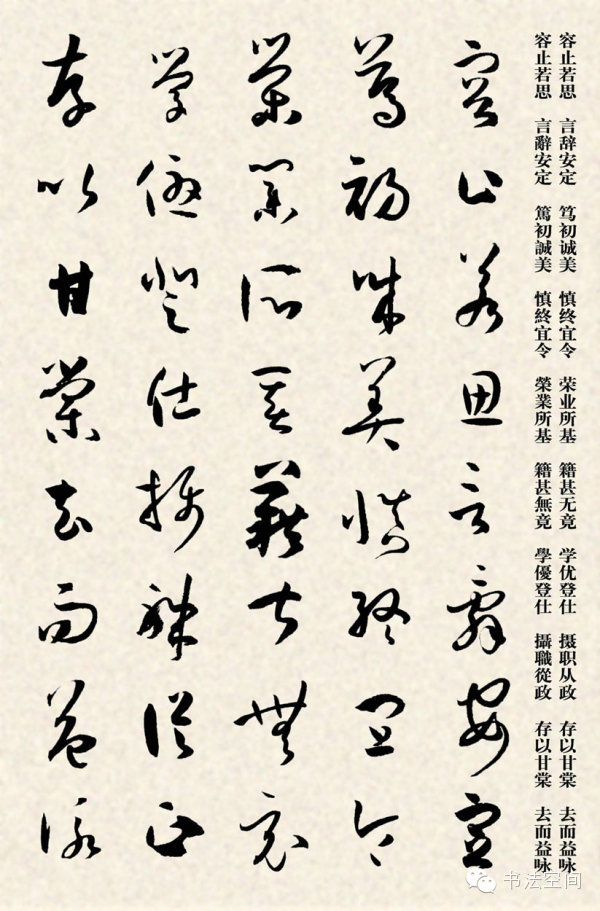 容止若思 言辞安定 笃初诚美 慎终宜令 荣业所基 籍甚无竟 学优登仕 摄职从政 存以甘棠 去而益咏
容止若思 言辭安定 篤初誠美 慎終宜令 榮業所基 籍甚無竟 學優登仕 攝職從政 存以甘棠 去而益詠
容止若思言辭安定
篤初誠美慎終宜令
榮業所基籍甚無竟
學優登仕攝職從政
存以甘棠去而益詠
书法空间